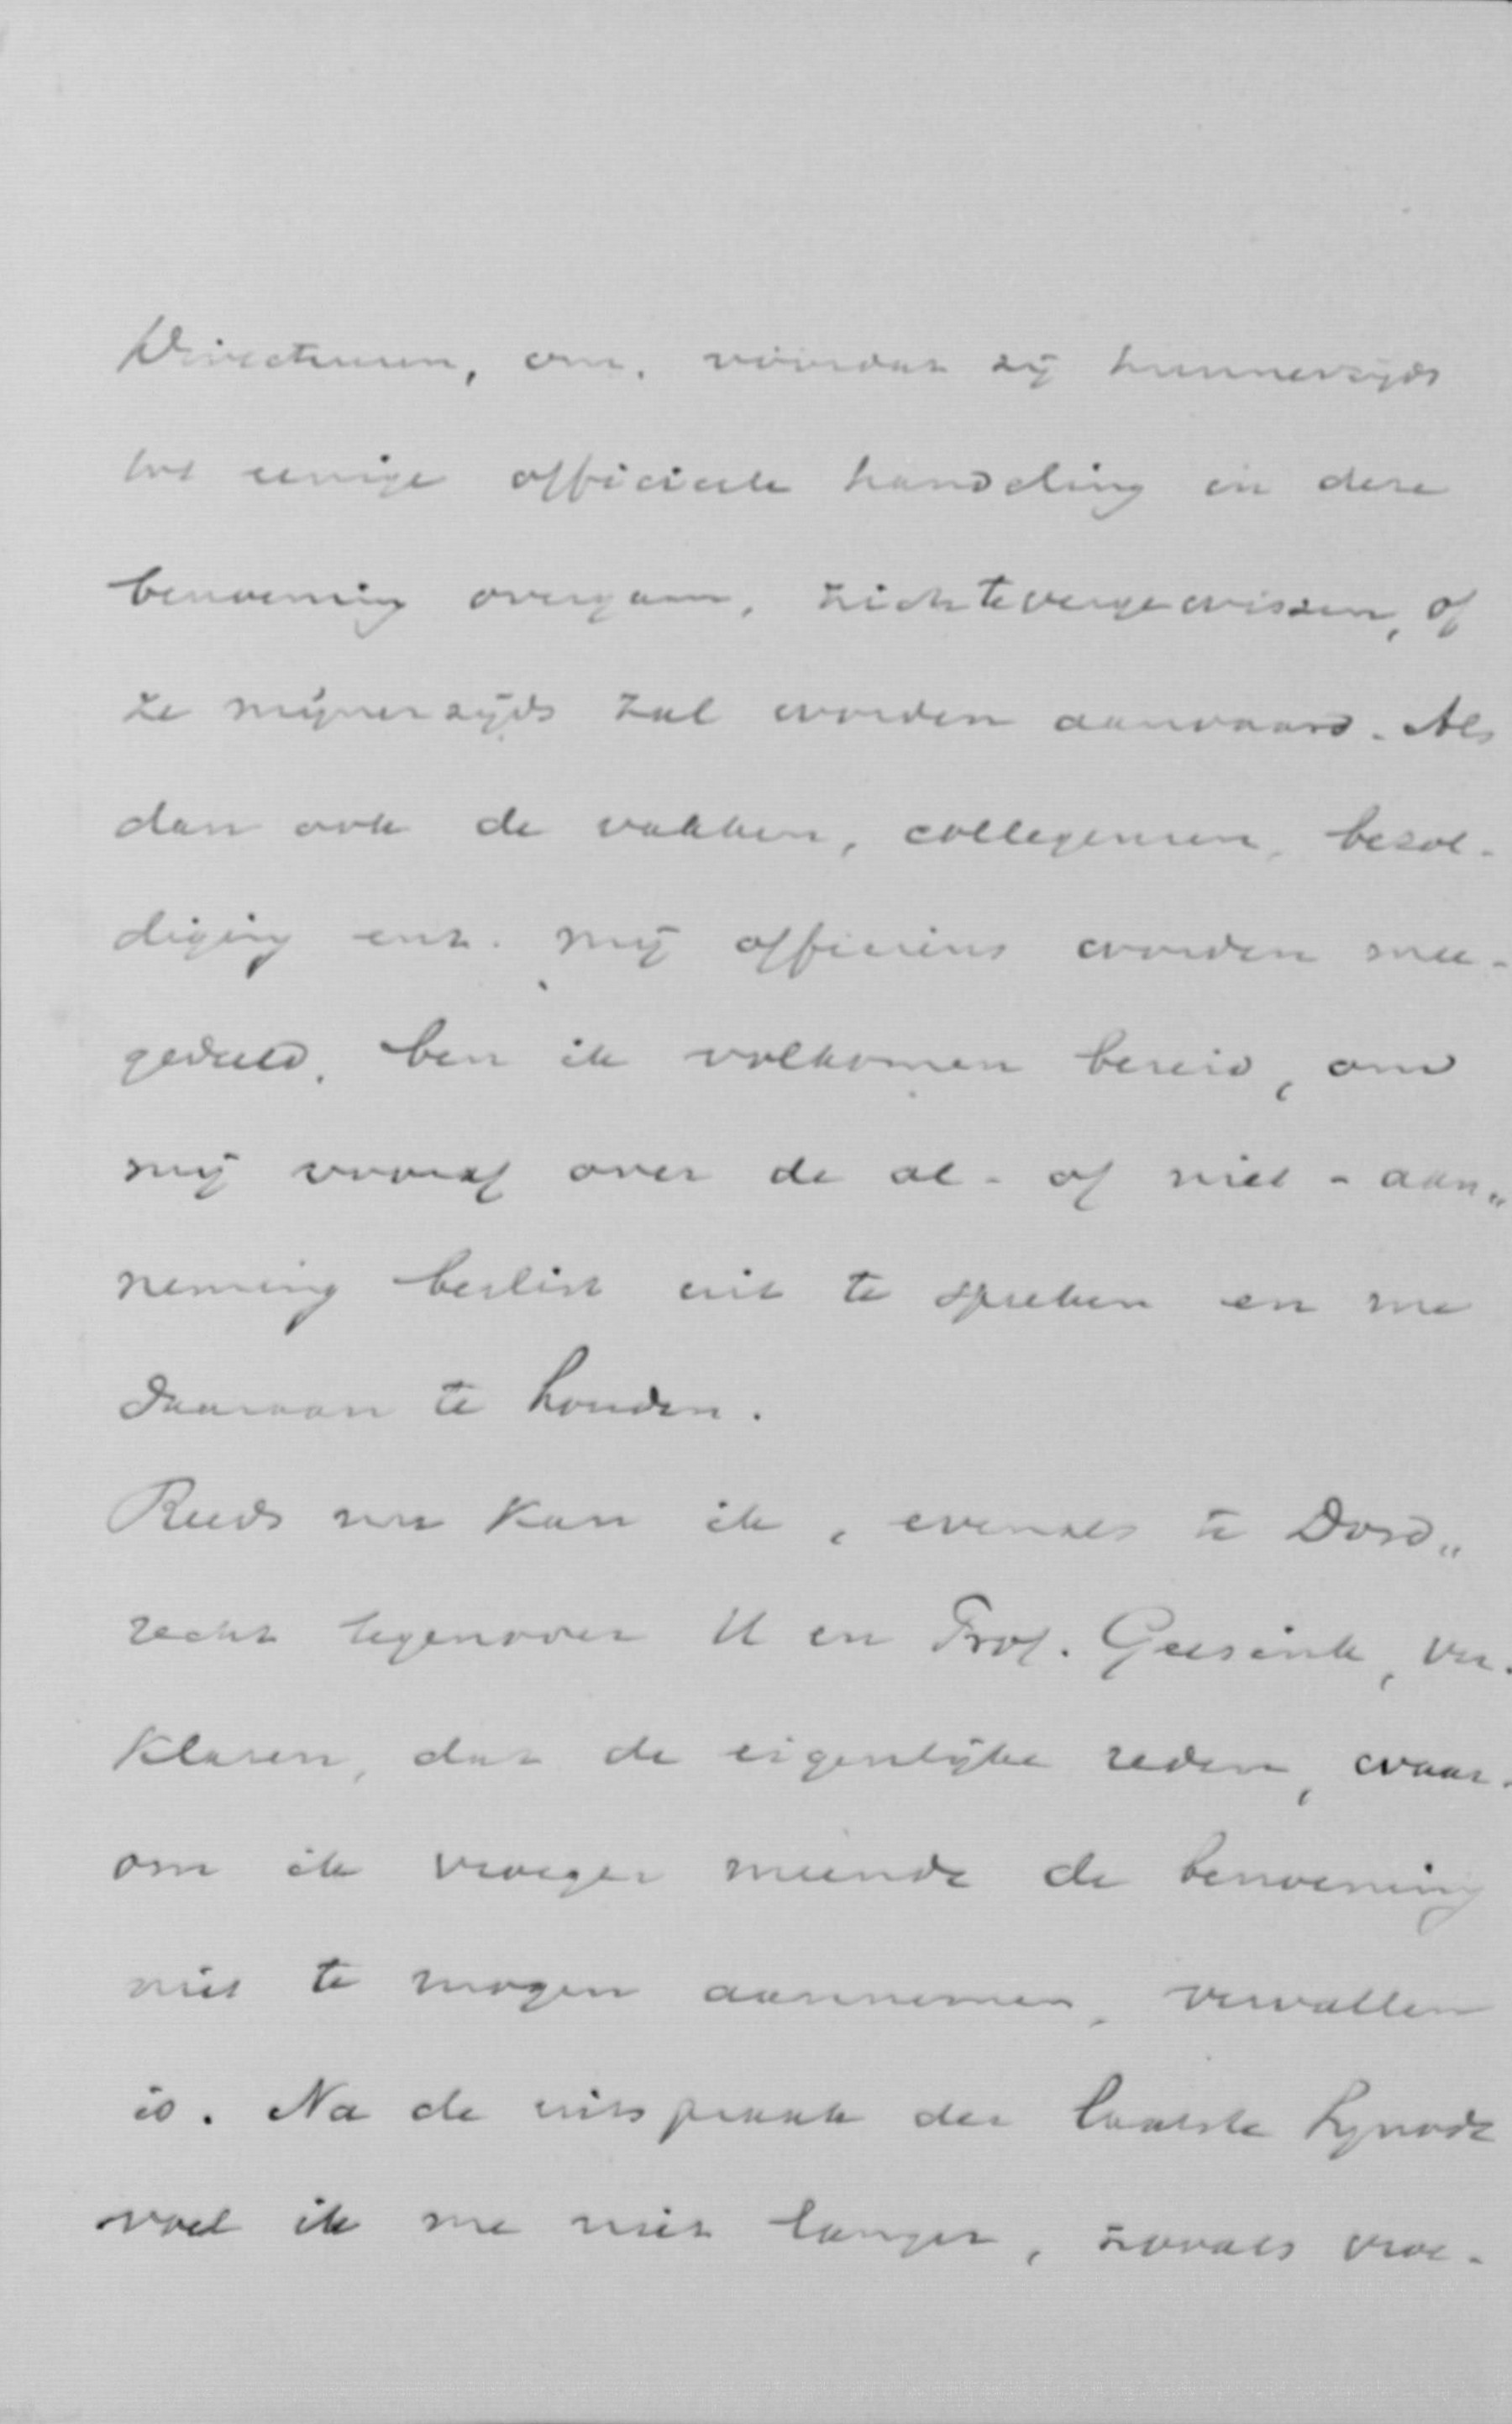 Directeuren, om, vóórdat zij hunnerzijds
tot eenige officieele handeling in deze
benoeming overgaan, zich te vergewissen, of
ze mijnerzijds zal worden aanvaard. Als
dan ook de vakken, collegeuren, bezol-
diging enz. mij officieus worden mee-
gedeeld, ben ik volkomen bereid, om
mij vooraf over de al- of niet-aan„
neming beslist uit te spreken en me
daaraan te houden.
Reeds nu kan ik, evenals te Dord„
recht tegenover U en Prof. Geesink, ver-
klaren, dat de eigenlijke reden, waar-
om ik vroeger meende de benoeming
niet te mogen aannemen, vervallen
is. Na de uitspraak der laatste Synode
voel ik me niet langer, zooals vroe-